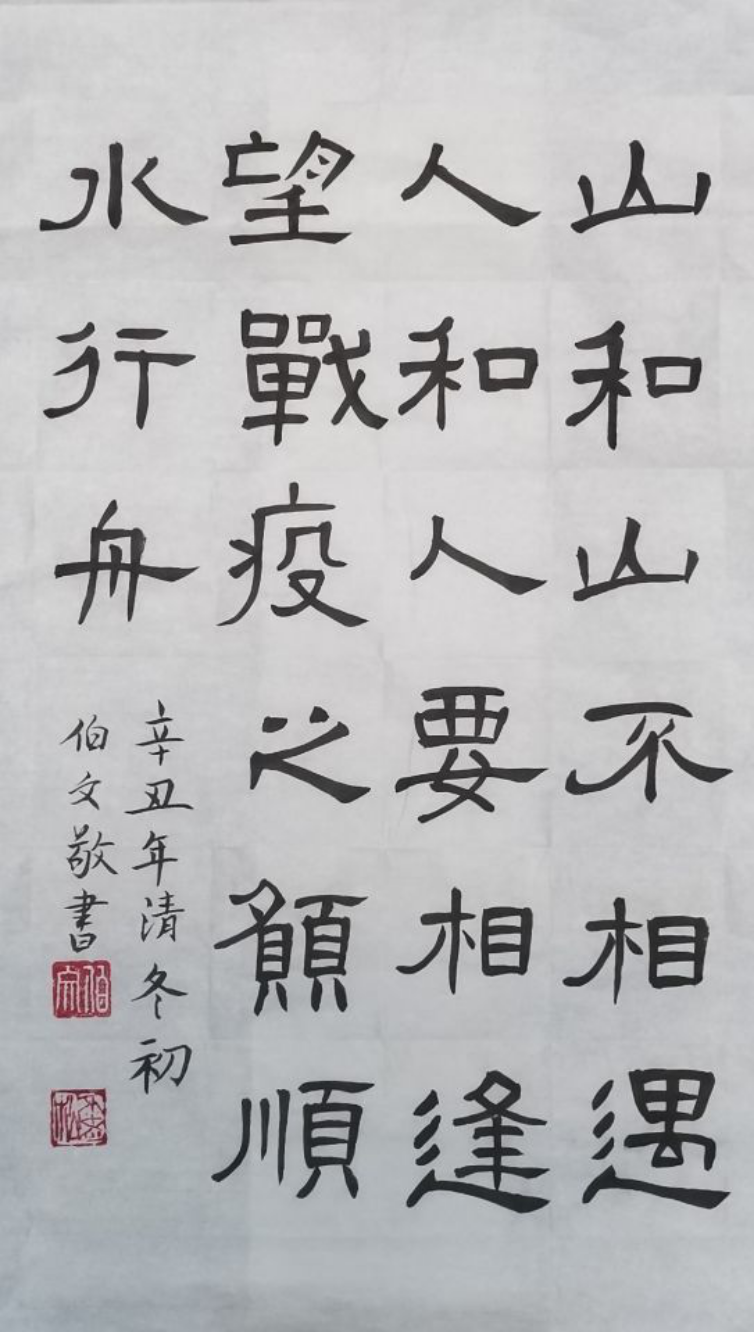 山和山不相遇
人和人要相逢
望戰疫之願順
水行舟
辛丑年清冬初
伯文敬書